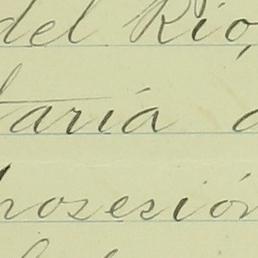 del Rio,
taria
posesión